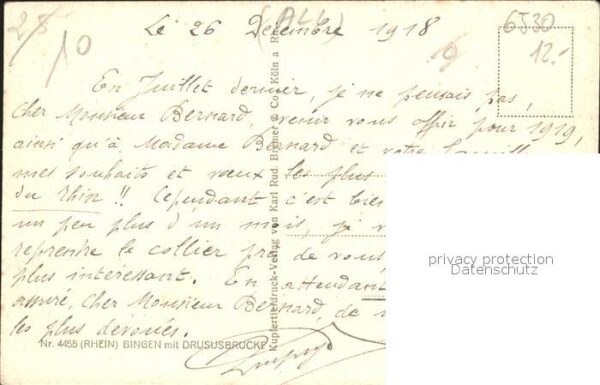 28
10
(ALL)
6530
12.-
Le 26 Décembre 1918
En Juillet dernier, je ne pensais pas,
cher Monsieur Bernard, venir vous offrir pour 1919,
ainsi qu'à Madame Bernard et votre
mes souhaits et vœux les plus
du Rhin !! Cependant c'est bien
un peu plus d'un mois, je
reprendre le collier près de vous,
plus intéressant. En attendant
assuré, cher Monsieur Bernard, de
les plus dévoués.
Nr. 4455 (RHEIN) BINGEN mit DRUSUSBRÜCKE
Kupfertiefdruck-Verlag von Karl Rud. Bremer & Co. Köln a R
privacy protection
Datenschutz